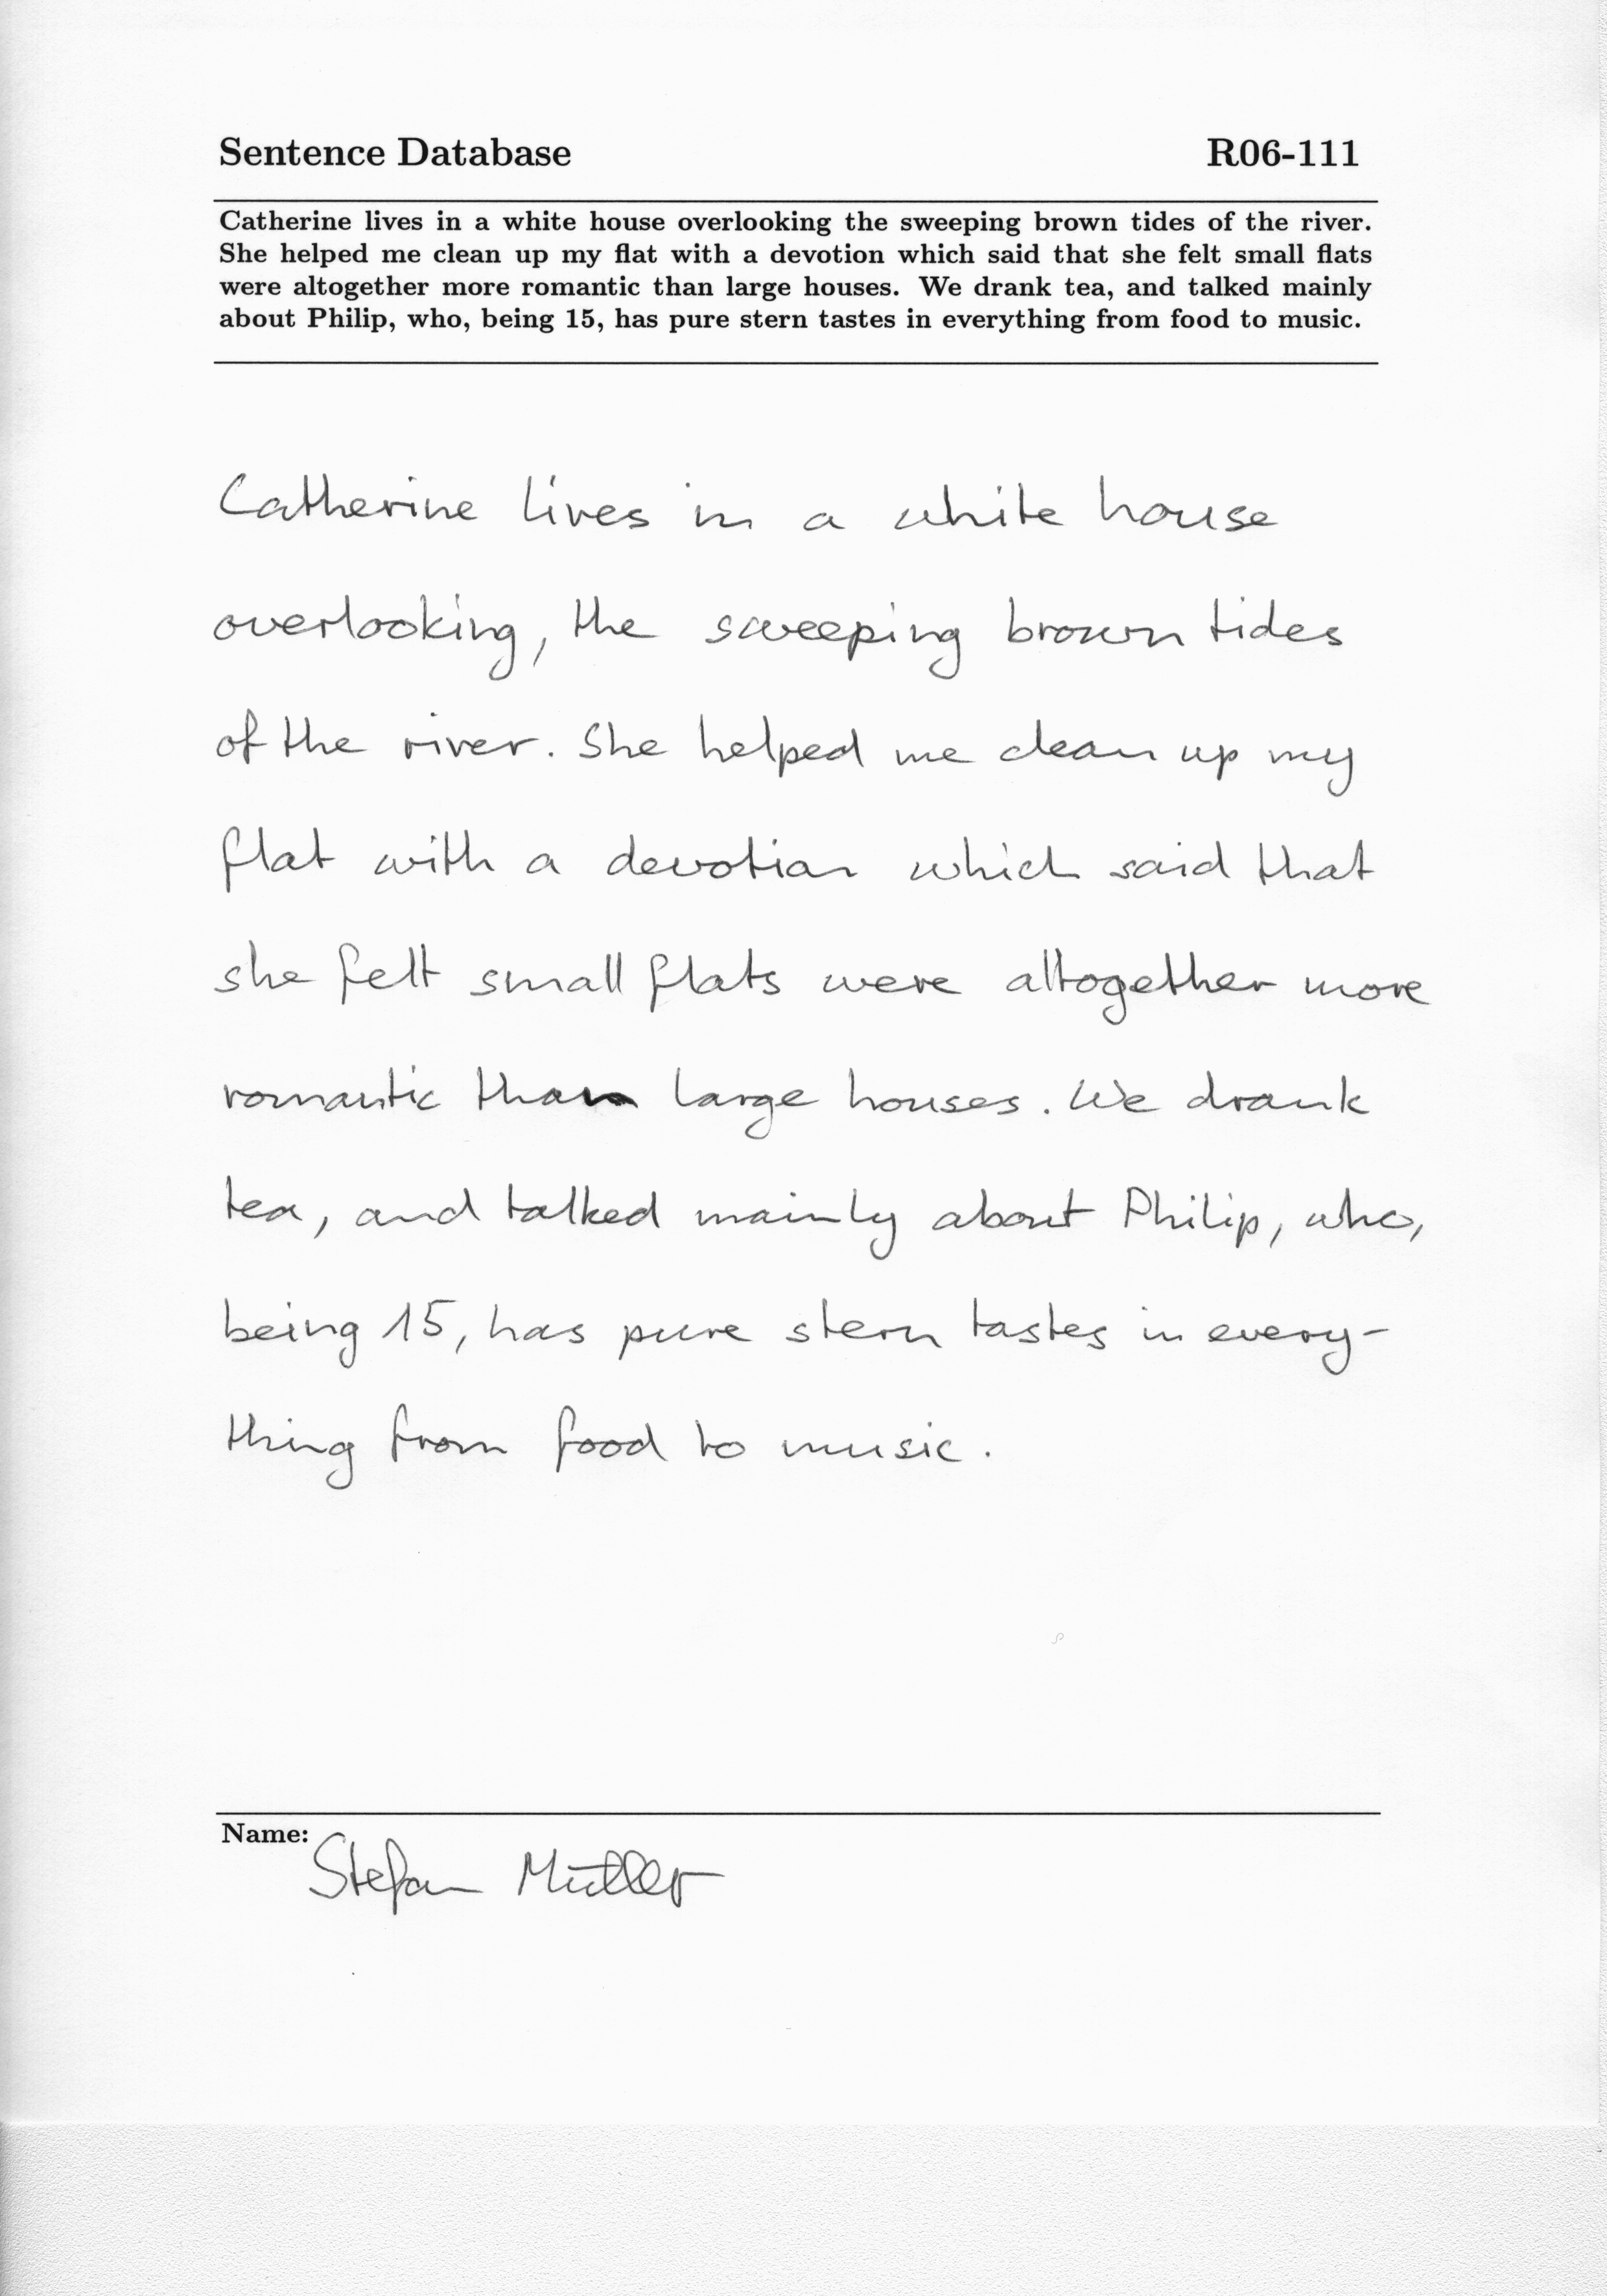 Sentence Database R06-111
Catherine lives in a white house overlooking the sweeping brown tides of the river.
She helped me clean up my flat with a devotion which said that she felt small flats
were altogether more romantic than large houses. We drank tea, and talked mainly
about Philip, who, being 15, has pure stern tastes in everything from food to music.
Catherine lives in a white house
overlooking, the sweeping brown tides
of the river. She helped me clean up my
flat with a devotion which said that
she felt small flats were altogether more
romantic than large houses. We drank
tea, and talked mainly about Philip, who,
being 15, has pure stern tastes in every-
thing from food to music.
Name:
Stefan Müller